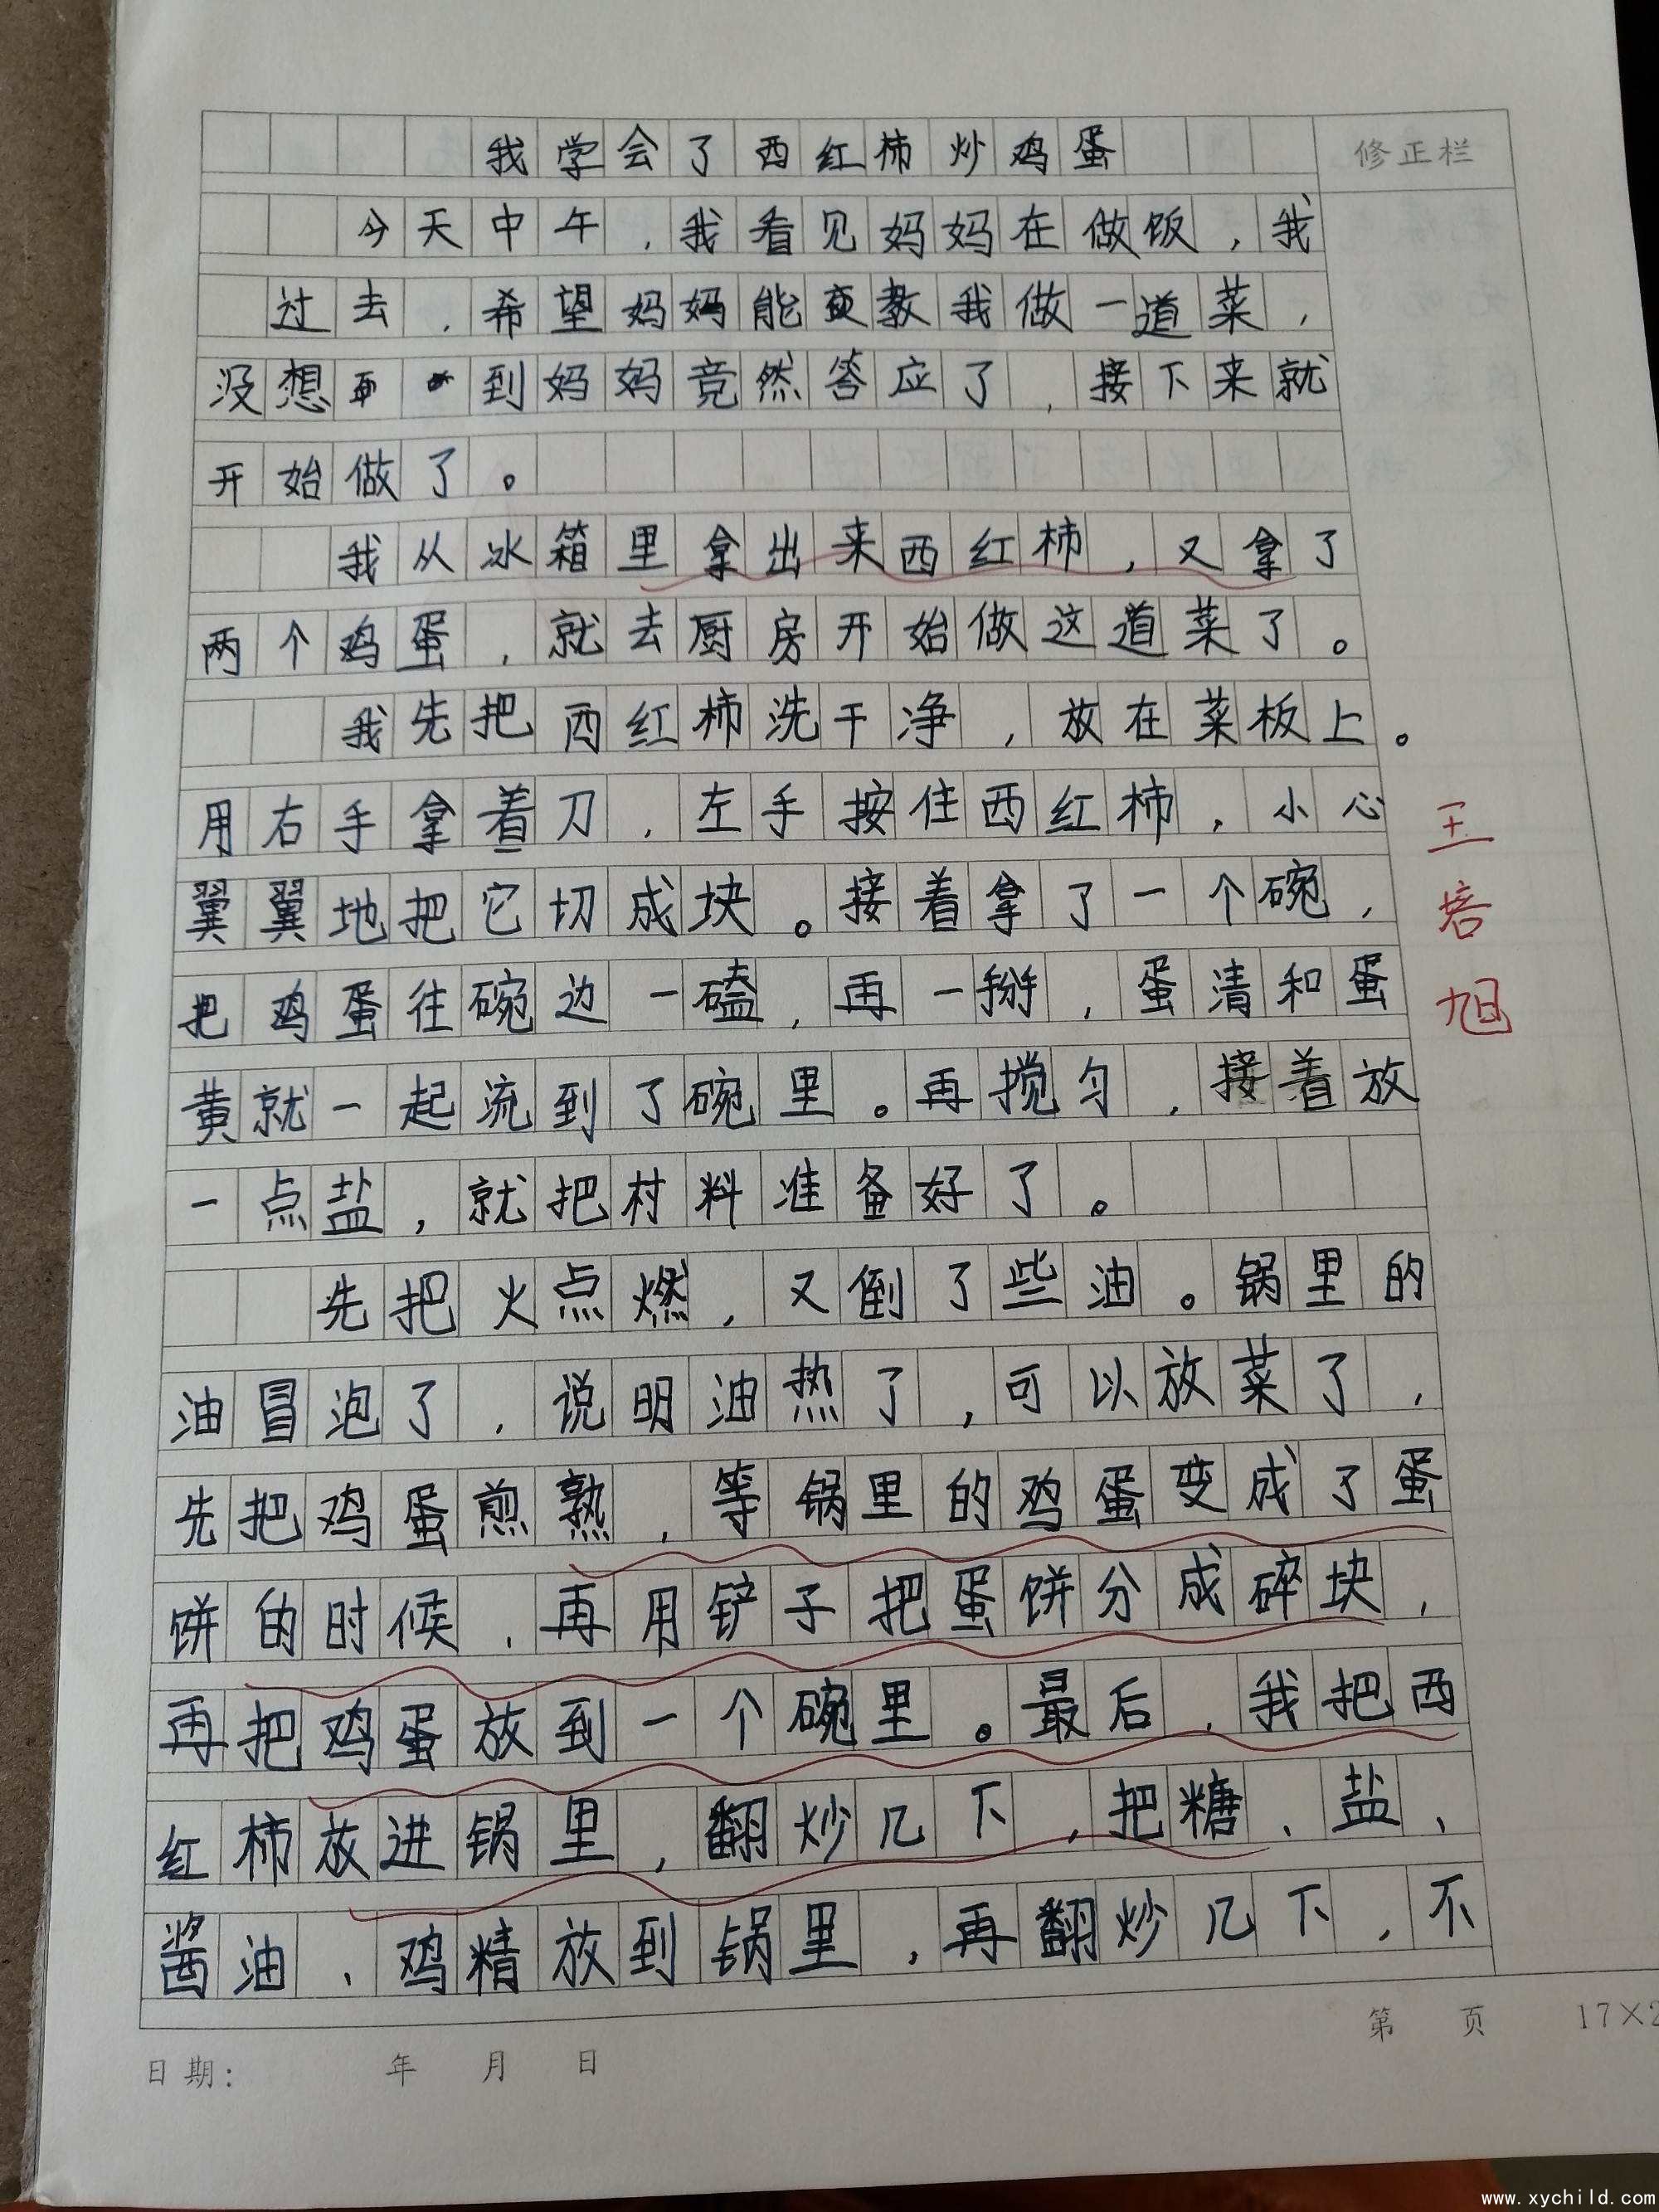 我学会了西红柿炒鸡蛋
修正栏
今天中午，我看见妈妈在做饭，我
过去，希望妈妈能教我做一道菜，
没想到妈妈竟然答应了，接下来就
开始做了。
我从冰箱里拿出来西红柿，又拿了
两个鸡蛋，就去厨房开始做这道菜了。
我先把西红柿洗干净，放在菜板上。
用右手拿着刀，左手按住西红柿，小心
翼翼地把它切成块。接着拿了一个碗，
把鸡蛋往碗边一磕，再一掰，蛋清和蛋
黄就一起流到了碗里。再搅匀，接着放
一点盐，就把材料准备好了。
先把火点燃，又倒了些油。锅里的
油冒泡了，说明油热了，可以放菜了，
先把鸡蛋煎熟，等锅里的鸡蛋变成了蛋
饼的时候，再用铲子把蛋饼分成碎块，
再把鸡蛋放到一个碗里。最后，我把西
红柿放进锅里，翻炒几下，把糖、盐、
酱油、鸡精放到锅里，再翻炒几下，不
王培旭
第 页 17×2
日期: 年 月 日
www.xychild.com